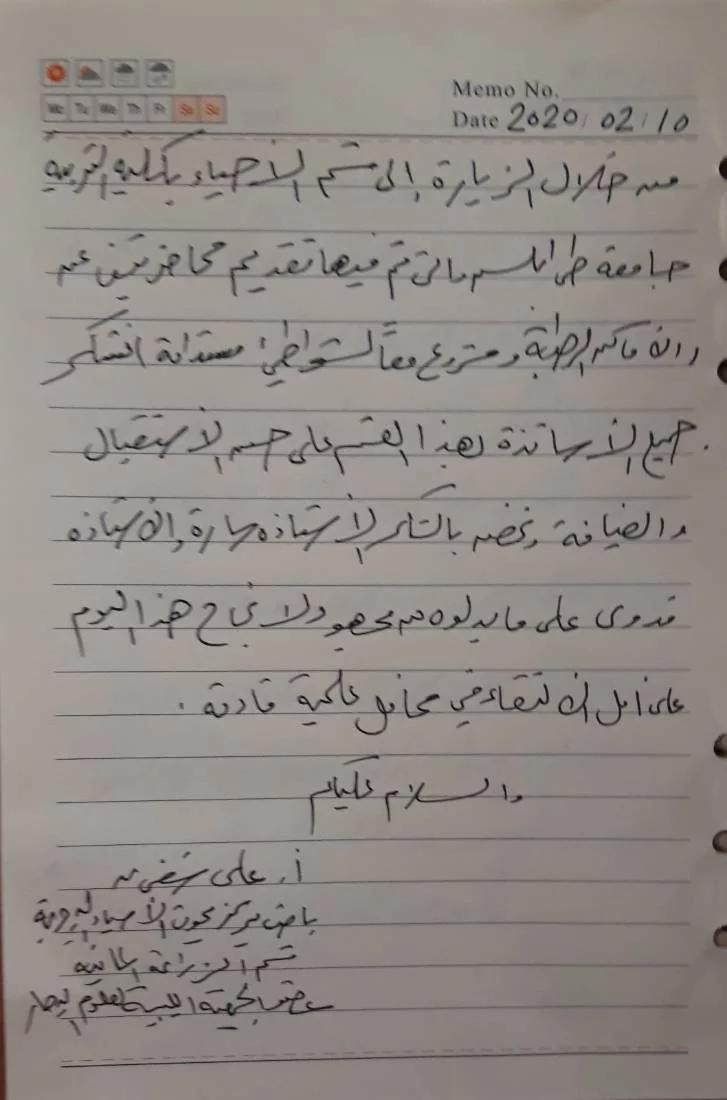 Memo No.
Mo Tu We Th Fr Sa Su
Date 2020/02/10
من خلال الزيارة إلى قسم الأحياء بكلية التربية
جامعة طرابلس والتي تم فيها تقديم محاضرتين عن
ومشروع معاً لشواطئ مستدامة أتشكر
جميع الأساتذة بهذا القسم على حسن الاستقبال
والضيافة ونخص بالشكر الأستاذه سارة والأستاذه
فدوى على ما بذلوه من مجهود ولانجاح هذا اليوم
على أمل الالتقاء في محافل علمية قادمة .
والسلام عليكم
أ. علي
باحث بمركز بحوث الأحياء البحرية
قسم الزراعة المائية
عضو بالجمعية الليبية لعلوم البحار